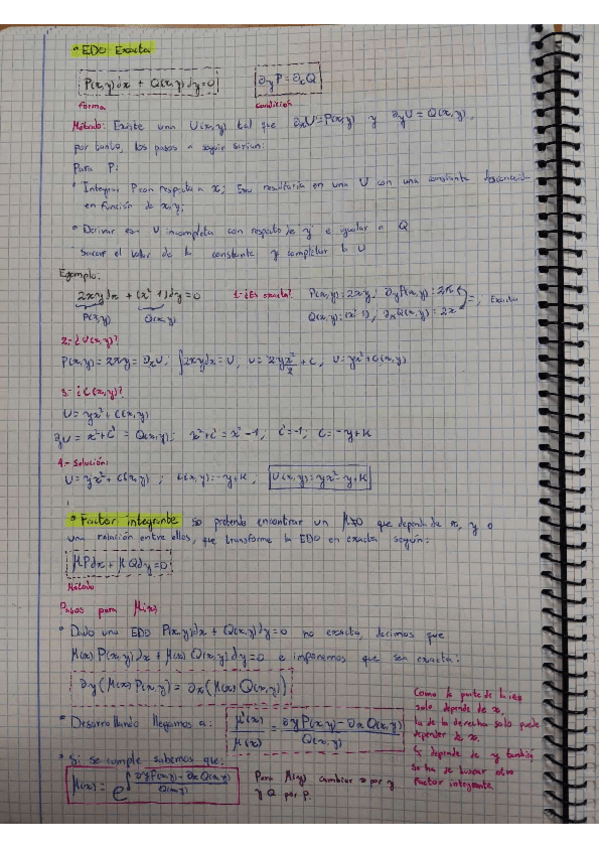 • EDO Exacta
P(x,y)dx + Q(x,y)dy=0    ∂yP=∂xQ
forma    condición
Método: Existe una U(x,y) tal que ∂xU=P(x,y) y ∂yU=Q(x,y),
por tanto, los pasos a seguir serían:
Para P:
• Integrar P con respecto a x; Eso resultaría en una U con una constante desconocida
en función de x,y;
• Derivar esa U incompleta con respecto de "y" e igualar a Q
Sacar el valor de la constante y completar la U
Ejemplo:
2xydx + (x²-1)dy=0    1-¿Es exacta?    P(x,y)=2xy; ∂yP(x,y)=2x
P(x,y)    Q(x,y)    Q(x,y)=(x²-1); ∂xQ(x,y)=2x    =; Exacta
2-¿U(x,y)?
P(x,y)=2xy=∂xU; ∫2xydx=U, U=2yx²/2+C, U=yx²+C(x,y)
3-¿C(x,y)?
U=yx²+C(x,y)
∂yU=x²+C'=Q(x,y); x²+C'=x²-1; C'=-1; C=-y+K
4-Solución:
U=yx²+C(x,y); C(x,y)=-y+K, U(x,y)=yx²-y+K
• Factor integrante se pretende encontrar un μ≠0 que dependa de x, y o
una relación entre ellos, que transforme la EDO en exacta según:
μPdx+μQdy=0
Método
Pasos para μ(x)
• Dada una EDO P(x,y)dx + Q(x,y)dy=0 no exacta, decimos que
μ(x)P(x,y)dx+μ(x)Q(x,y)dy=0 e imponemos que sea exacta:
∂y(μ(x)P(x,y))=∂x(μ(x)Q(x,y))
• Desarrollando llegamos a: μ'(x)/μ(x)=∂yP(x,y)-∂xQ(x,y)/Q(x,y)
Como la parte de la izq
solo depende de x,
la de la derecha solo puede
depender de x.
Si depende de y también
se ha de buscar otro
factor integrante
• Si se cumple sabemos que:
μ(x)=e^∫∂yP(x,y)-∂xQ(x,y)/Q(x,y)    Para μ(y) cambiar x por y
y Q por P.